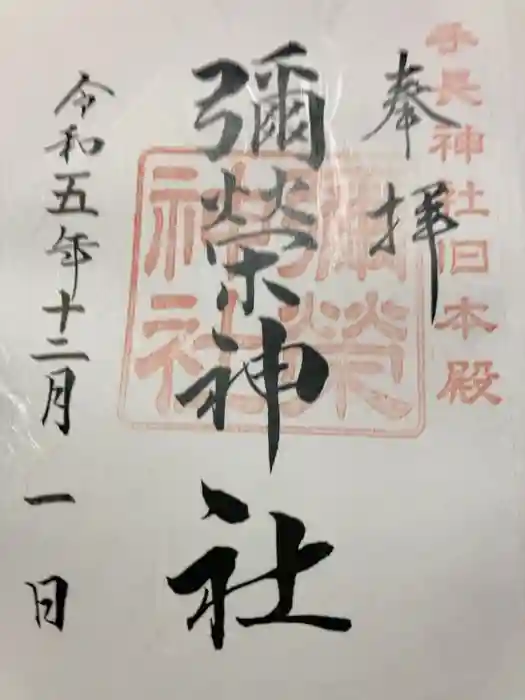 手長神社旧本殿
奉拝
彌榮神社
彌榮神社
令和五年十二月一日